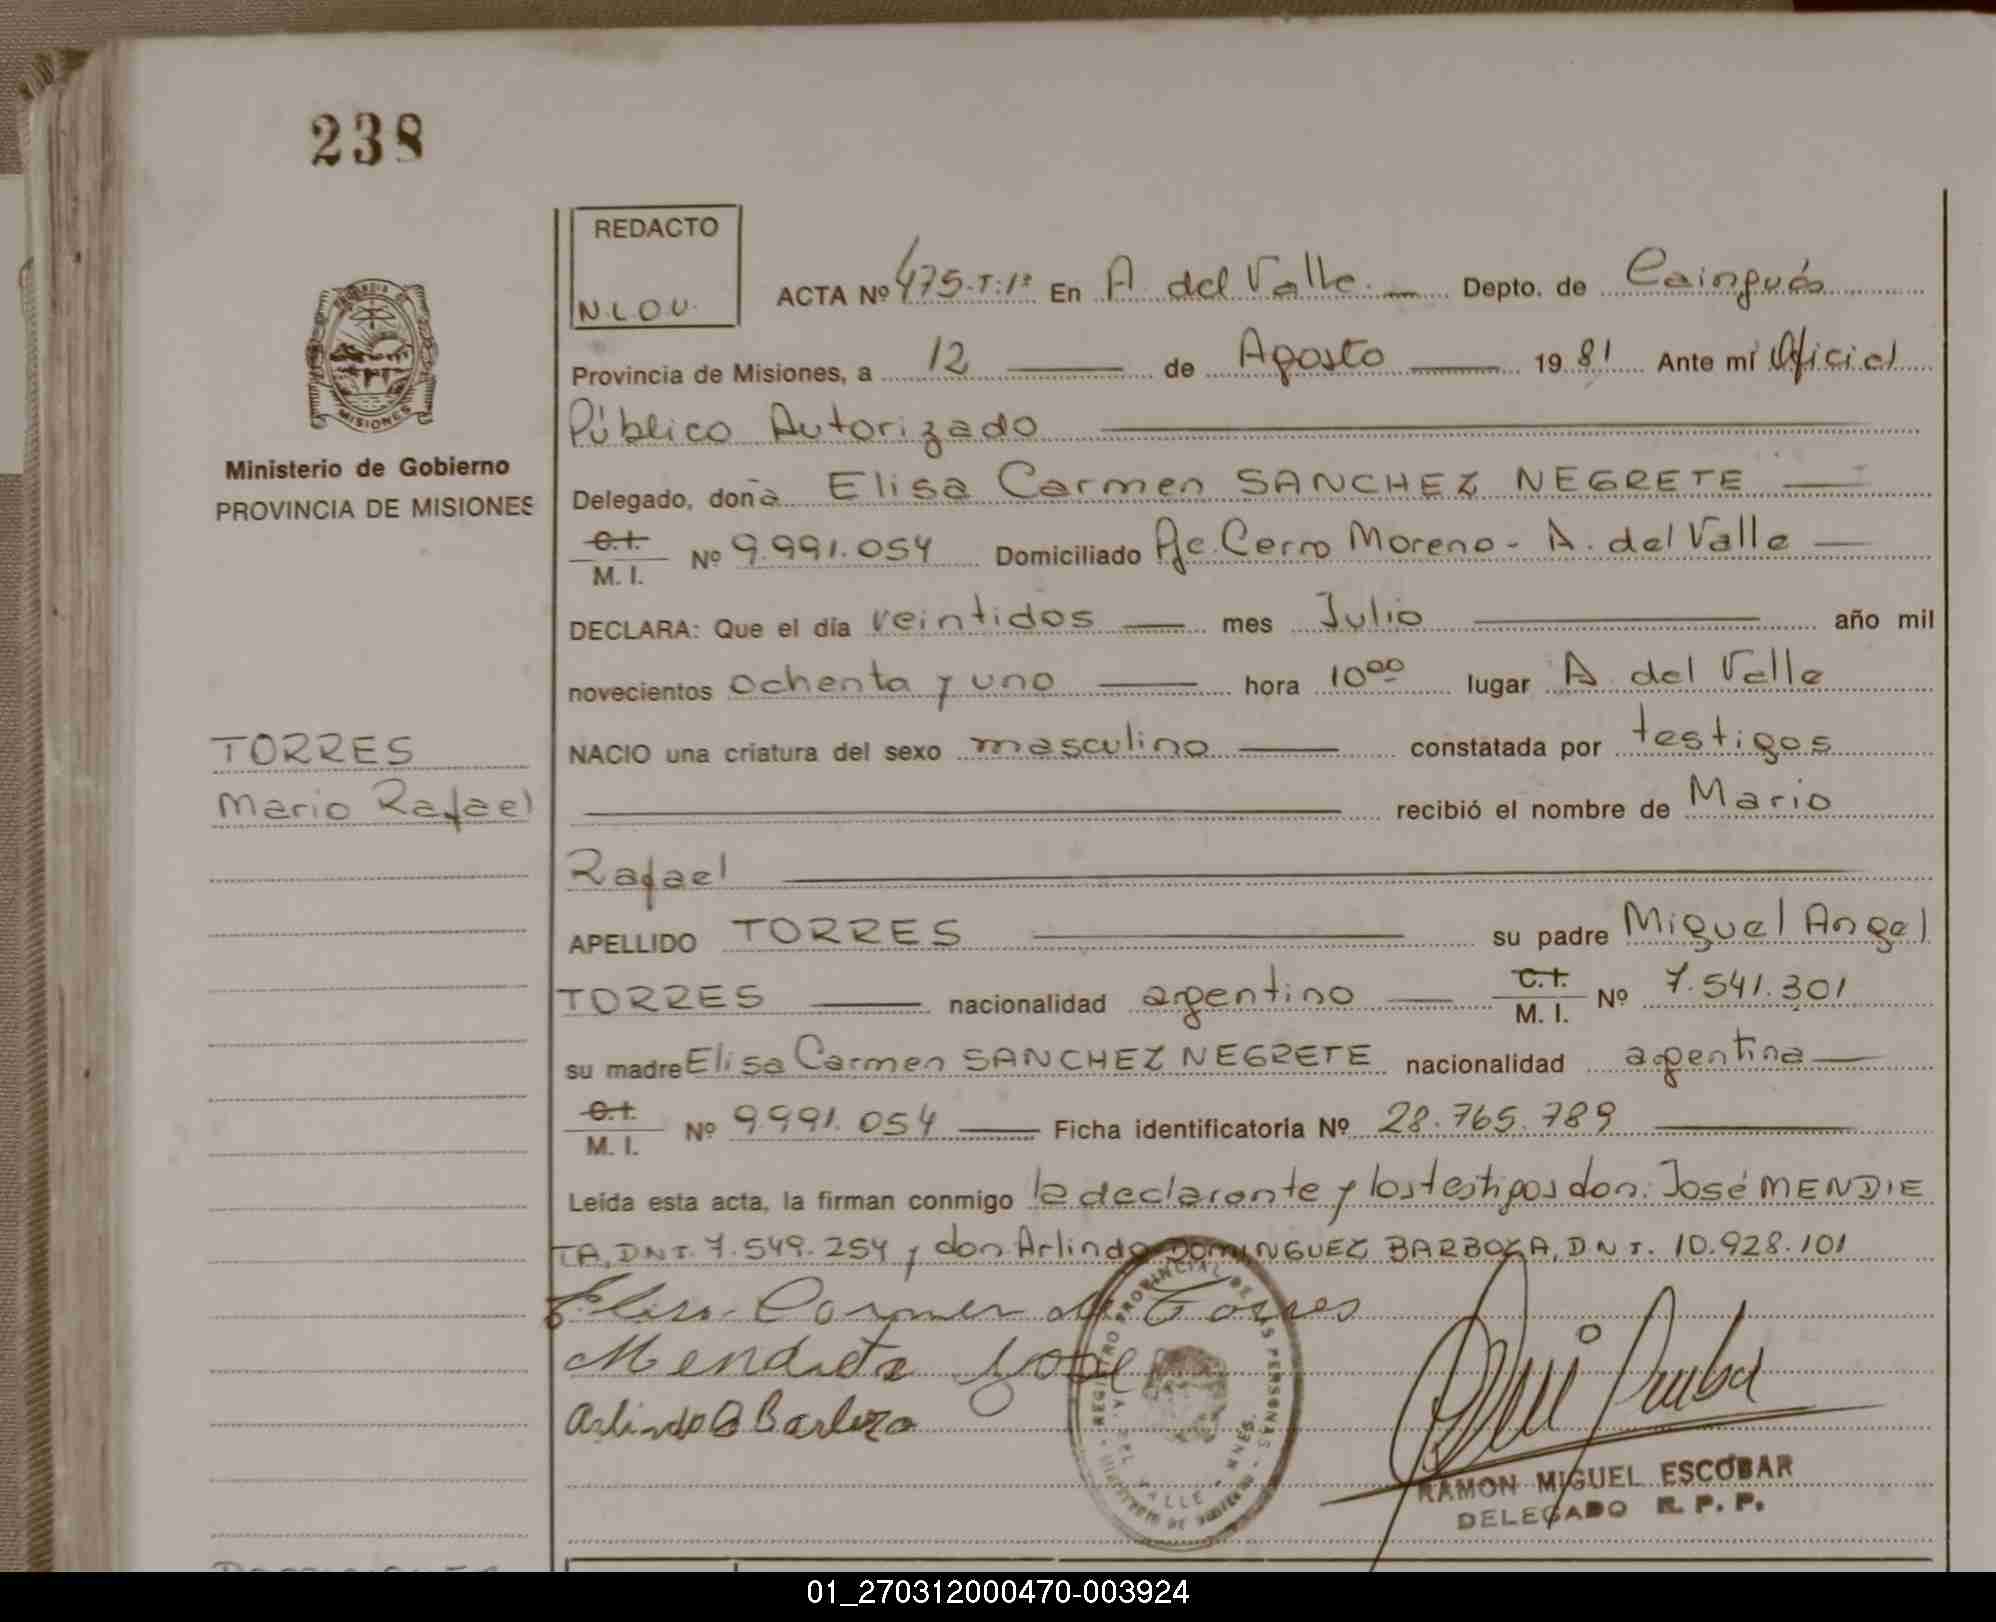 238
REDACTO
N.L.O.V.
ACTA Nº 475-T:1º En A. del Valle. Depto. de Cainguás
Provincia de Misiones, a 12 de Agosto 1981 Ante mí Oficial
Público Autorizado
MISIONES
Ministerio de Gobierno
PROVINCIA DE MISIONES
Delegado, doña Elisa Carmen SANCHEZ NEGRETE
C.I.
M. I. Nº 9.991.054 Domiciliado Pje. Cerro Moreno - A. del Valle
DECLARA: Que el día veintidos mes Julio año mil
novecientos ochenta y uno hora 10 00 lugar A. del Valle
TORRES
Mario Rafael
NACIO una criatura del sexo masculino constatada por testigos
recibió el nombre de Mario
Rafael
APELLIDO TORRES su padre Miguel Angel
TORRES nacionalidad argentino C.I. M. I. Nº 7.541.301
su madre Elisa Carmen SANCHEZ NEGRETE nacionalidad argentina
C.I.
M. I. Nº 9.991.054 Ficha identificatoria Nº 28.765.789
Leída esta acta, la firman conmigo la declarante y los testigos don: José MENDIE
TA, DNI. 7.549.254 y don Arlindo DOMINGUEZ BARBOZA, DNI. 10.928.101
Elisa Carmen de Torres
Mendieta José
Arlindo D Barboza
REGISTRO PROVINCIAL DE LAS PERSONAS
DEL VALLE
RAMON MIGUEL ESCOBAR
DELEGADO R. P. P.
01_270312000470-003924